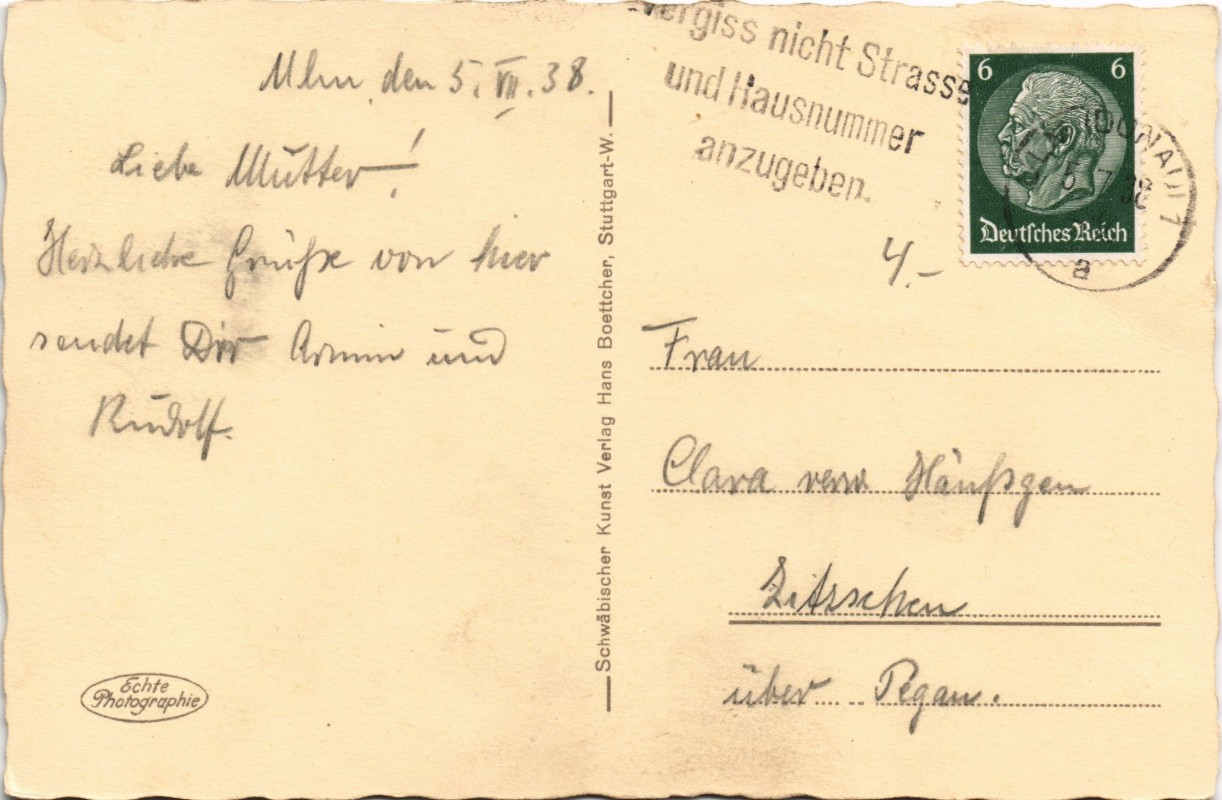 Ulm, den 5. VII. 38.
Liebe Mutter!
Herzliche Grüße von hier
sendet Dir Armin und
Rudolf.
Echte
Photographie
Schwäbischer Kunst Verlag Hans Boettcher, Stuttgart-W.
Vergiss nicht Strasse
und Hausnummer
anzugeben.
6 6
Deutsches Reich
(DONAU) 1
5.7.38
a
4.-
Frau
Clara verw Häußgen
Zitzschen
über Pegau.